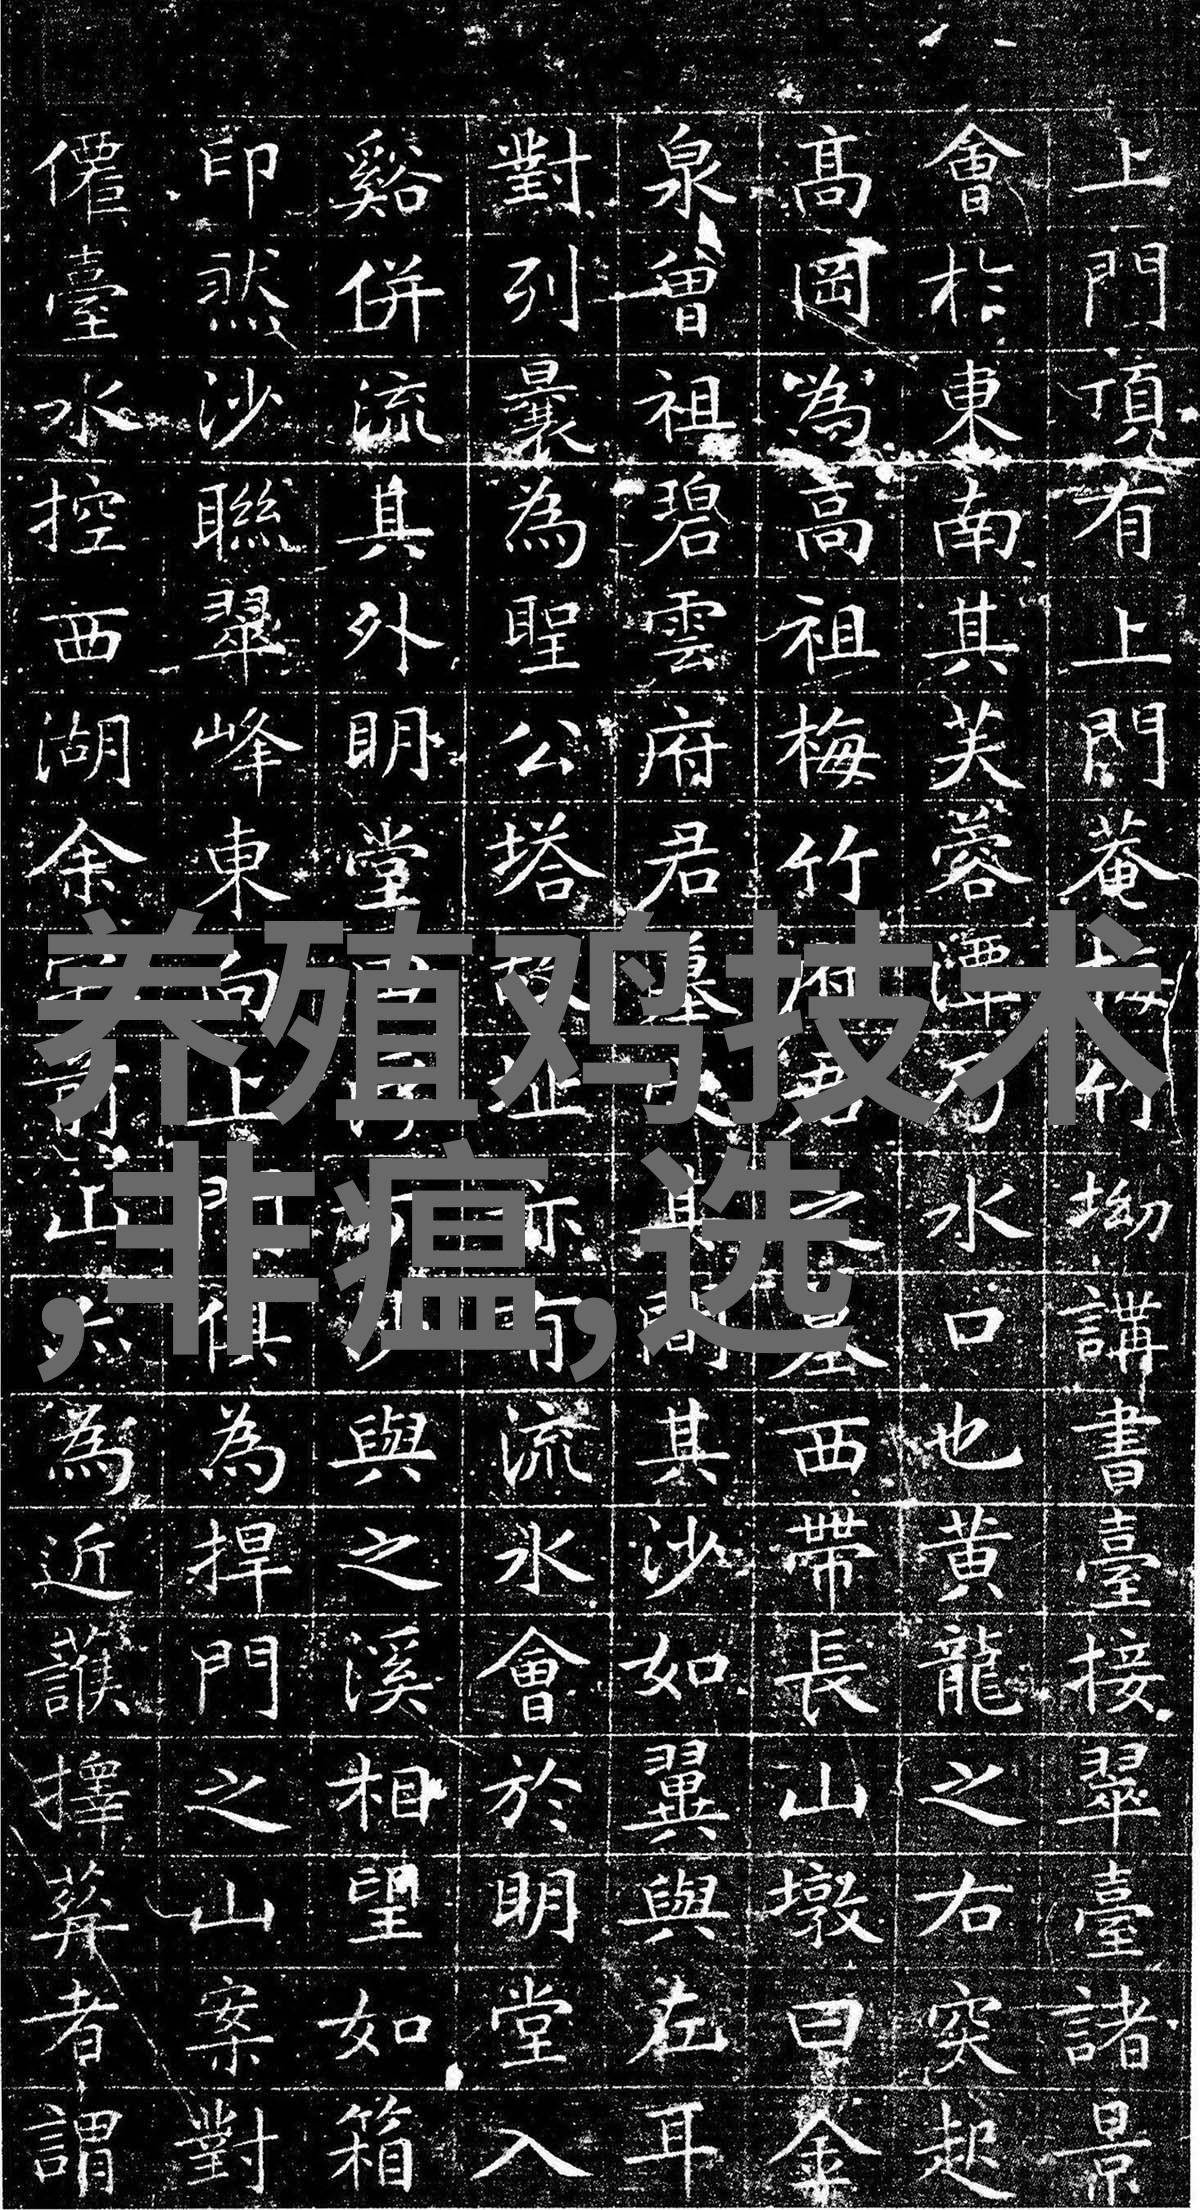 上門頂有上門菴梅竹坳講書臺接翠臺諸景
會於東南其芙蓉潭乃水口也黃龍之右突起
高岡為高祖梅竹府君之墓西帶長山墩曰金
泉曾祖碧雲府君墓其間其沙如翼與左耳
對列曩為聖公塔故址亦有流水會於明堂入
谿併流其外明堂沙與之溪相望如箱
印然沙聯翠峰東向上門俱為捍門之山案對
僊臺水控西湖余家前山亦為近護擇葬者謂
养殖鸡技术
,非瘟,选